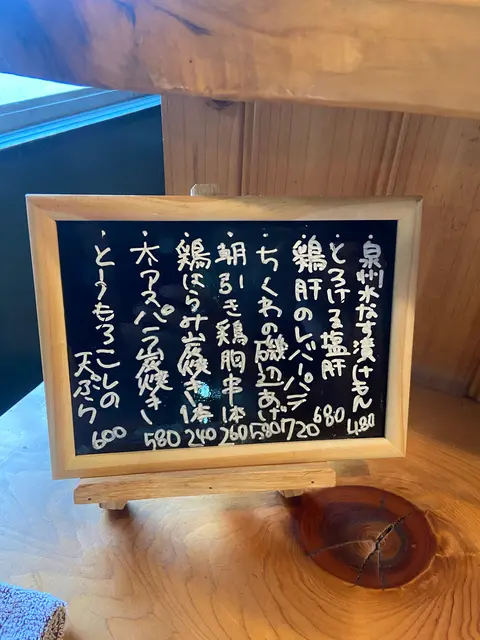 ・泉州水なす漬けもん 480
・とろける塩肝 680
・鶏肝のレバーパテ 720
・ちくわの磯辺あげ 580
・朝引き鶏胸串1本 260
・鶏はらみ炭焼き1本 240
・大アスパラ炭焼き 580
・とうもろこしの
天ぷら 600